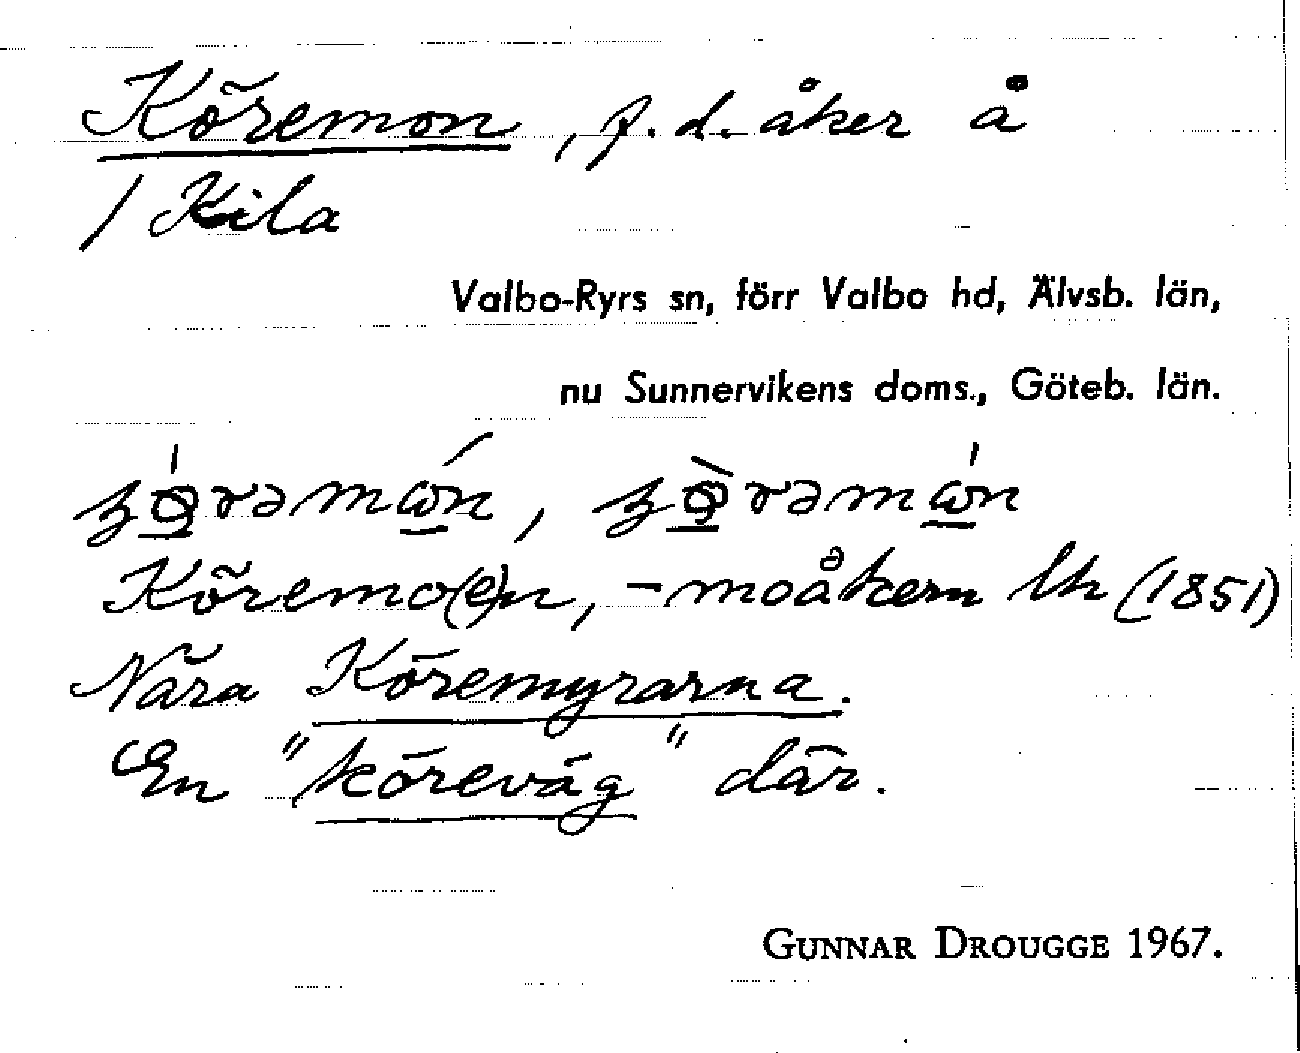 Köremon, f. d. åker å
/ Kila
Valbo-Ryrs sn, förr Valbo hd, Älvsb. län,
nu Sunnervikens doms., Göteb. län.
Köremo(e)n, -moåkern lh (1851)
Nära Köremyrarna.
En "köreväg" där.
GUNNAR DROUGGE 1967.